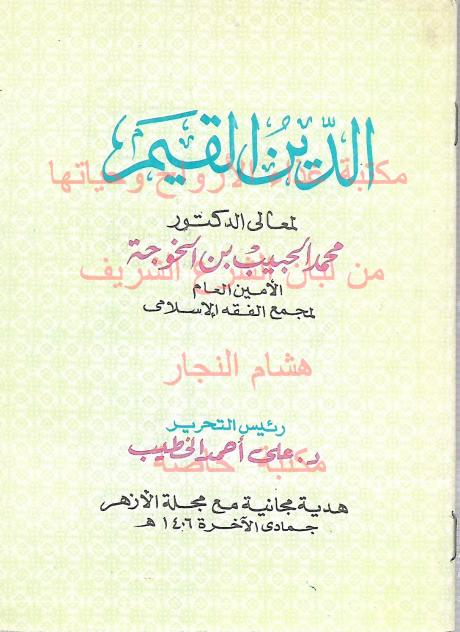 الدِّينُ القيم
مكتبة غذاء الأرواح وحياتها
لمعالى الدكتور
محمد الحبيب بن الخوجة
من لبان الشرع الشريف
الأمين العام
لمجمع الفقه الإسلامى
هشام النجار
رئيس التحرير
د. على أحمد الخطيب
مكتبة خاصة
هدية مجانية مع مجلة الأزهر
جمادى الآخرة ١٤٠٦ هـ